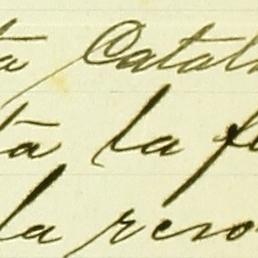 ta Catal
ta la f
la reso